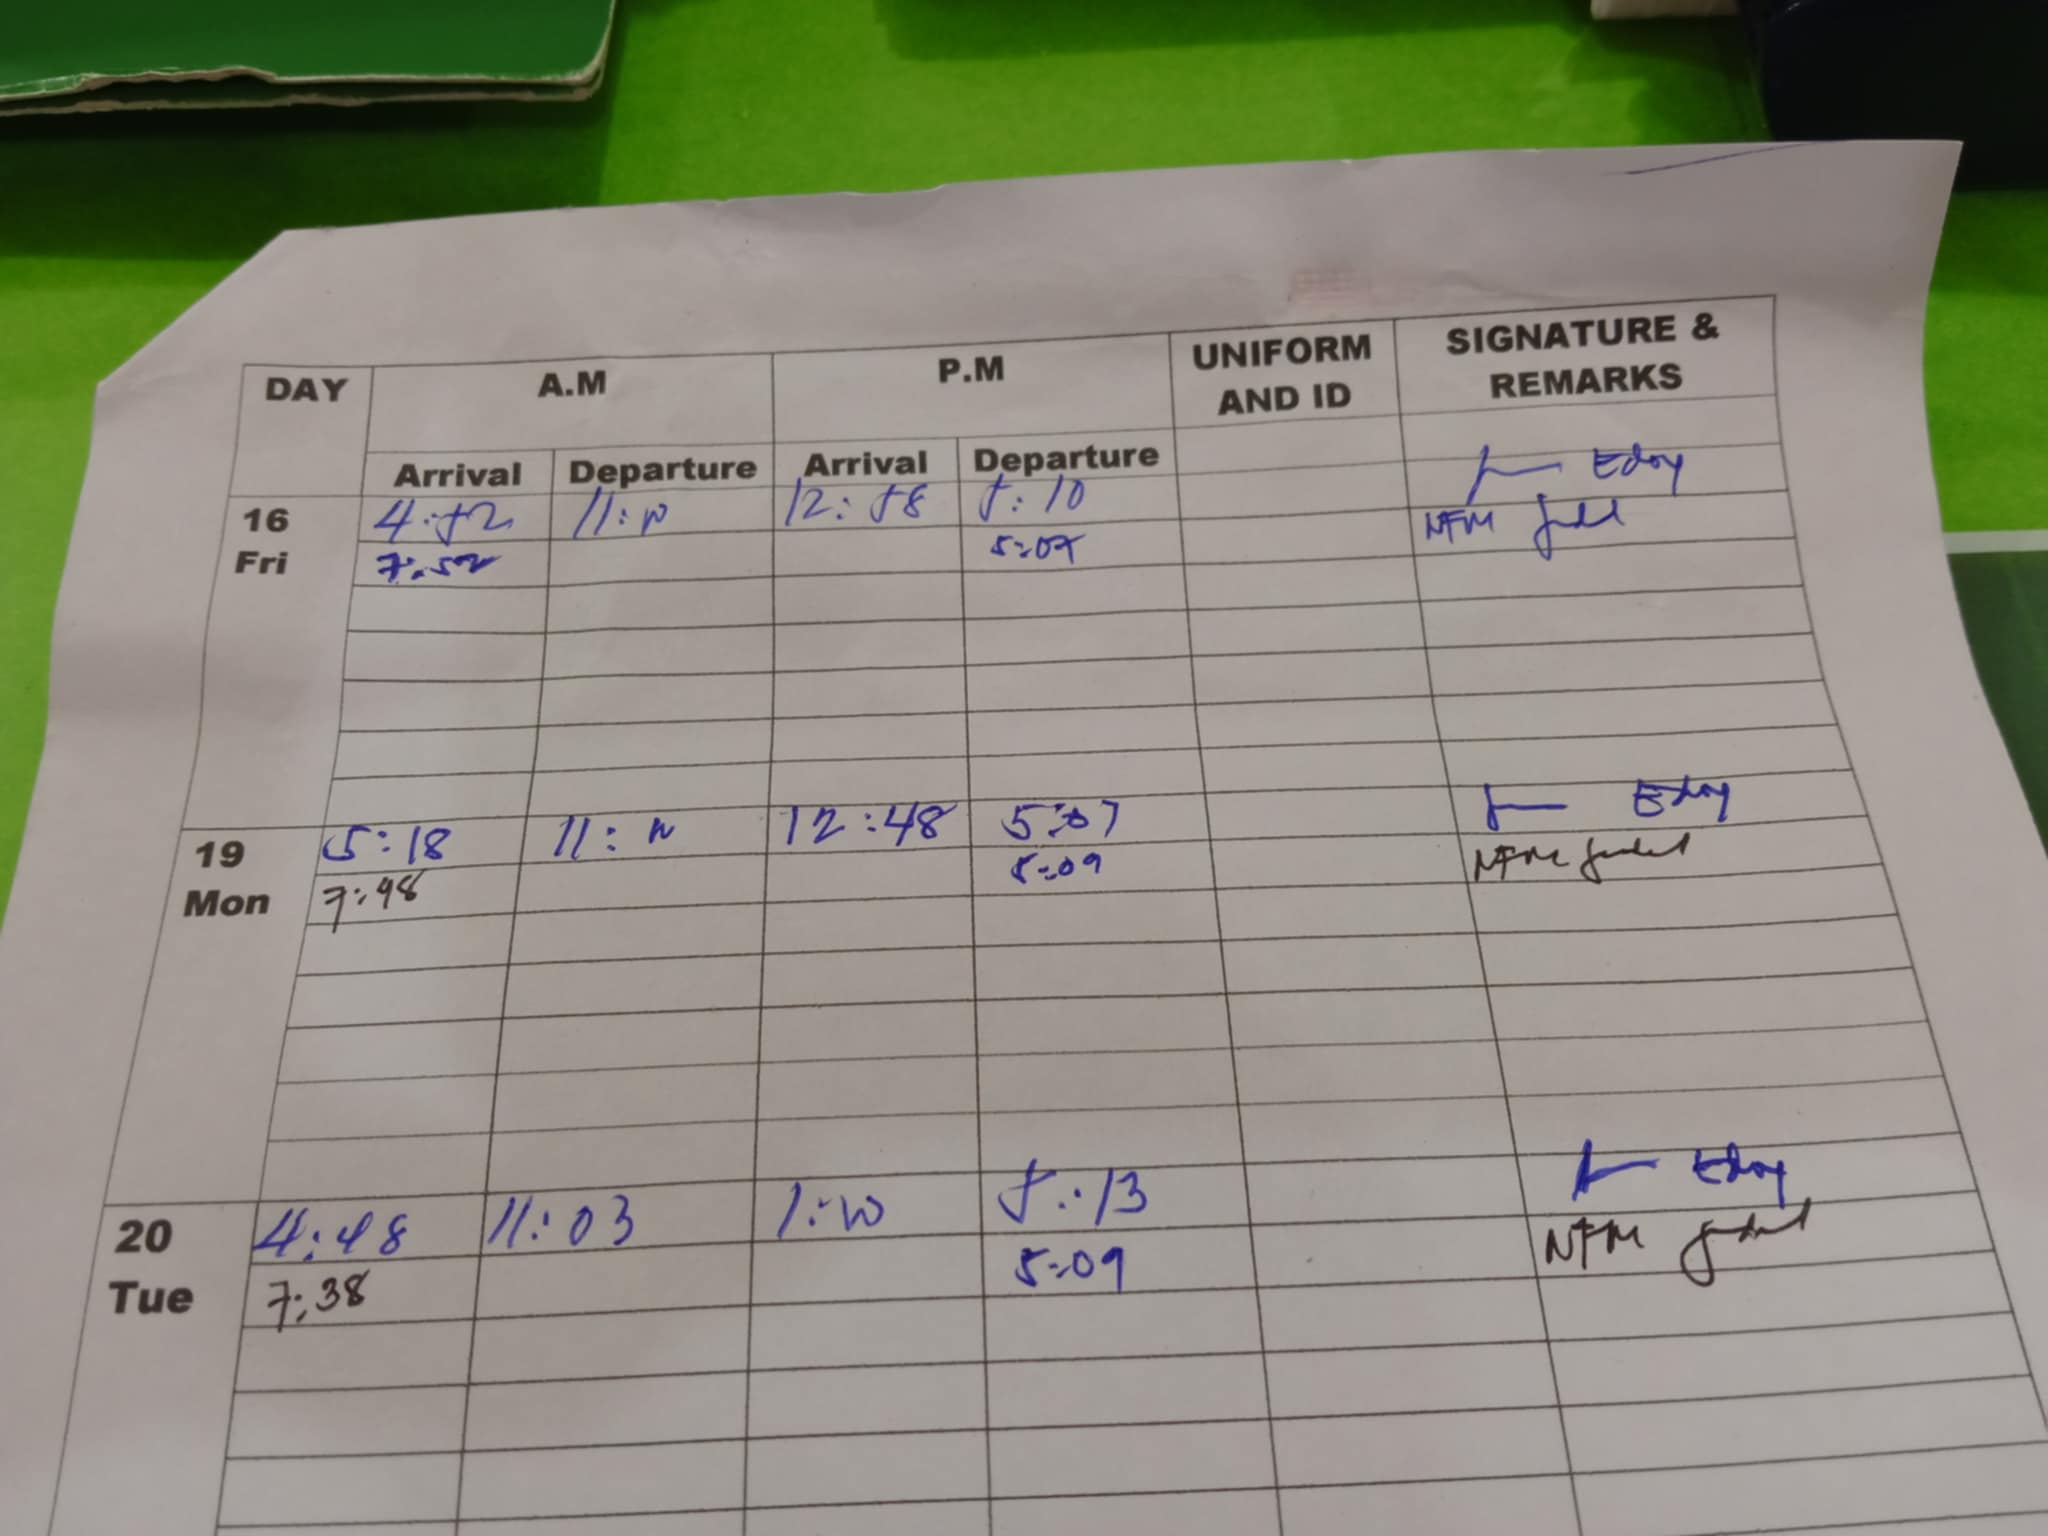 DAY A.M P.M UNIFORM AND ID SIGNATURE & REMARKS
Arrival Departure Arrival Departure
16 Fri 4:52 11: 12:58 5:10 Edoy
7:52 5:07 NFM
19 Mon 5:18 11: 12:48 5:07 Edoy
7:48 5:09 NFM
20 Tue 4:48 11:03 1: 5:13 Edoy
7:38 5:09 NFM